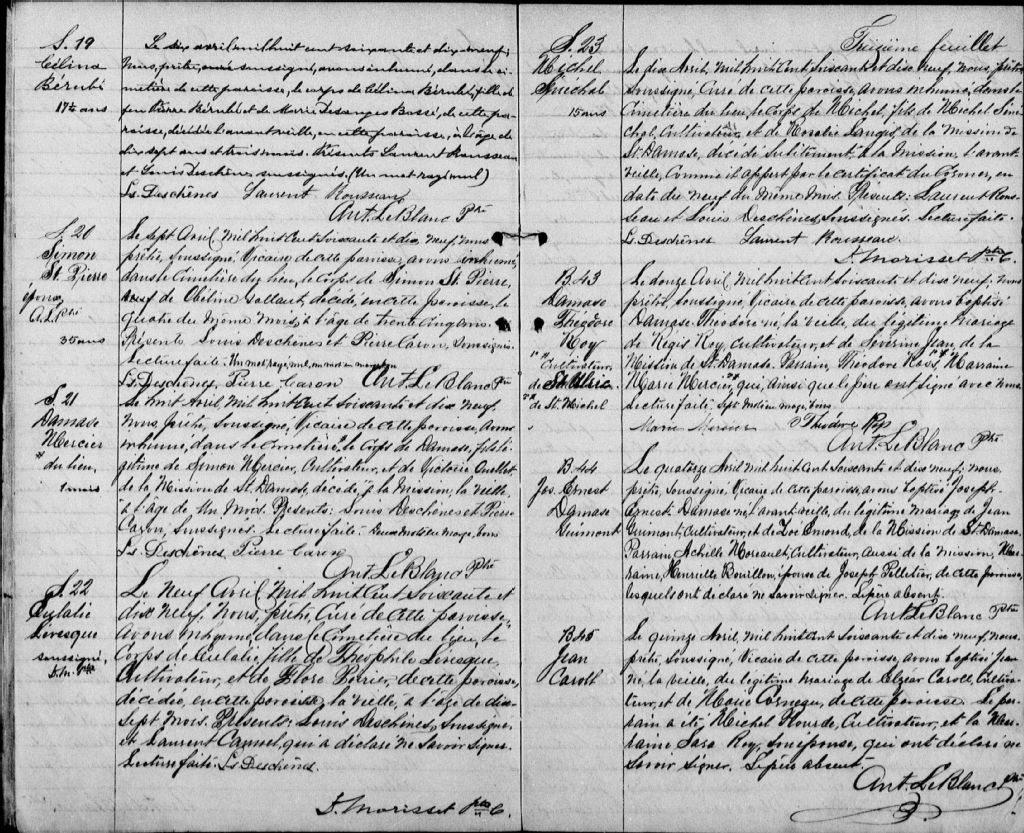 S. 19
Célina
Bérubé
17½ ans
Le six avril mil huit cent soixante et dix neuf,
Nous, prêtre, curé soussigné, avons inhumé, dans le ci-
metière de cette paroisse, le corps de Célina Bérubé, fille de
feu Pierre Bérubé et de Marie Desanges Bossé, de cette pa-
roisse, décédée l'avant veille, en cette paroisse, à l'âge de
dix sept ans et trois mois. Présents Laurent Rousseau
et Louis Deschênes soussignés. (Un mot rayé nul)
Ls. Deschênes Laurent Rousseau
Ant. LeBlanc Ptre
S. 20
Simon
St. Pierre
époux
A.L. Ptre
35 ans
Le sept Avril, Mil huit Cent Soixante et dix neuf, nous
prêtre, Soussigné, Vicaire de cette paroisse, avons inhumé,
dans le Cimetière du lieu, le Corps de Simon St. Pierre,
de Obéline Gallant, décédé, en cette paroisse, le
quatre du Même Mois, à l'âge de trente cinq ans.
Présents Louis Deschênes et Pierre Caron, Soussignés.
Lecture faite. Un mot rayé, nul, un mot en
Ls. Deschênes, Pierre Caron Ant. LeBlanc Ptre
S. 21
Damase
Mercier
" du lieu,
1 mois
Le huit Avril, Mil huit Cent Soixante et dix neuf,
Nous Prêtre, Soussigné, Vicaire de cette paroisse, Avons
inhumé, dans le Cimetière " le Corps de Damase, fils lé-
gitime de Simon Mercier, Cultivateur, et de Victoire Ouellet
de la Mission de St. Damase, décédé, à la Mission, la veille,
à l'âge de Un Mois. Présents: Louis Deschênes et Pierre
Caron, Soussignés. Lecture faite. Deux mots en Marge, bons
Ls. Deschênes, Pierre Caron
Ant. LeBlanc Ptre
S. 22
Eulalie
Lévesque
soussigné,
D.M. Ptre
Le Neuf Avril, Mil huit Cent Soixante et
dix Neuf, Nous, prêtre, Curé de Cette paroisse,
avons inhumé, dans le Cimetière du lieu, le
Corps de Eulalie, fille de Théophile Lévesque,
Cultivateur, et de Flore Poirier, de cette paroisse,
décédée, en cette paroisse, la veille, à l'âge de dix
Sept Mois. Présents, Louis Deschênes, Soussigné,
et Laurent Cannel, qui a déclaré ne Savoir Signer.
Lecture faite. Ls Deschênes.
D. Morisset Ptre C.
Treizième feuillet
S. 23
Michel
Senechal
15 ans
Le dix Avril, Mil huit Cent Soixante et dix neuf, nous, prêtre
Soussigné, Curé de cette paroisse, avons inhumé, dans le
Cimetière du lieu, le Corps de Michel, fils de Michel Séné-
chal, Cultivateur, et de Rosalie Langis, de la Mission de
St. Damase, décédé Subitement, à la Mission, l'avant
veille, Comme il appert par le Certificat du Coroner, en
date du neuf du Même Mois. Présents: Laurent Rous-
seau et Louis Deschênes, Soussignés. Lecture faite.
Ls. Deschênes Laurent Rousseau.
D. Morisset Ptre C.
B. 43
Damase
Théodore
Roy
" " Cultivateur,
de
" " de St. Michel
Le douze Avril, Mil huit Cent Soixante et dix neuf, nous
prêtre, Soussigné, Vicaire de cette paroisse, avons baptisé
Damase Théodore né, la veille, du légitime mariage
de Régis Roy, Cultivateur, et de Séverine Jean, de la
Mission de St. Damase. Parrain, Théodore Ross, " " Marraine
Marie Mercier, " " qui, ainsi que le père ont Signé avec nous.
Lecture faite. Sept mots en marge, bons
Marie Mercier Théodore
Ant. LeBlanc Ptre
B. 44
Jos. Ernest
Damase
Guimont
Le quatorze Avril Mil huit Cent Soixante et dix neuf, nous
prêtre, Soussigné, Vicaire de cette paroisse, avons baptisé Joseph
Ernest Damase né l'avant-veille, du légitime mariage de Jean
Guimont, Cultivateur, et de Zoé Emond, de la Mission de St. Damase.
Parrain, Achille Moreault, Cultivateur, Aussi de la Mission, Mar-
raine, Henriette Bouillon, épouse de Joseph Pelletier, de cette paroisse,
lesquels ont déclaré ne Savoir Signer. Le père absent.
Ant. LeBlanc Ptre
B. 45
Jean
Caroll
Le quinze Avril, Mil huit Cent Soixante et dix neuf, Nous
prêtre, Soussigné, Vicaire de cette paroisse, avons baptisé Jean
né, la veille, du légitime mariage de Elzear Caroll, Cultiva-
teur, et de Marie Corneau, de cette paroisse. Le par-
rain a été Michel Plourde, Cultivateur, et la Mar-
raine Sara Roy, Son épouse, qui ont déclaré ne
Savoir Signer. Le père absent.
Ant. LeBlanc Ptre